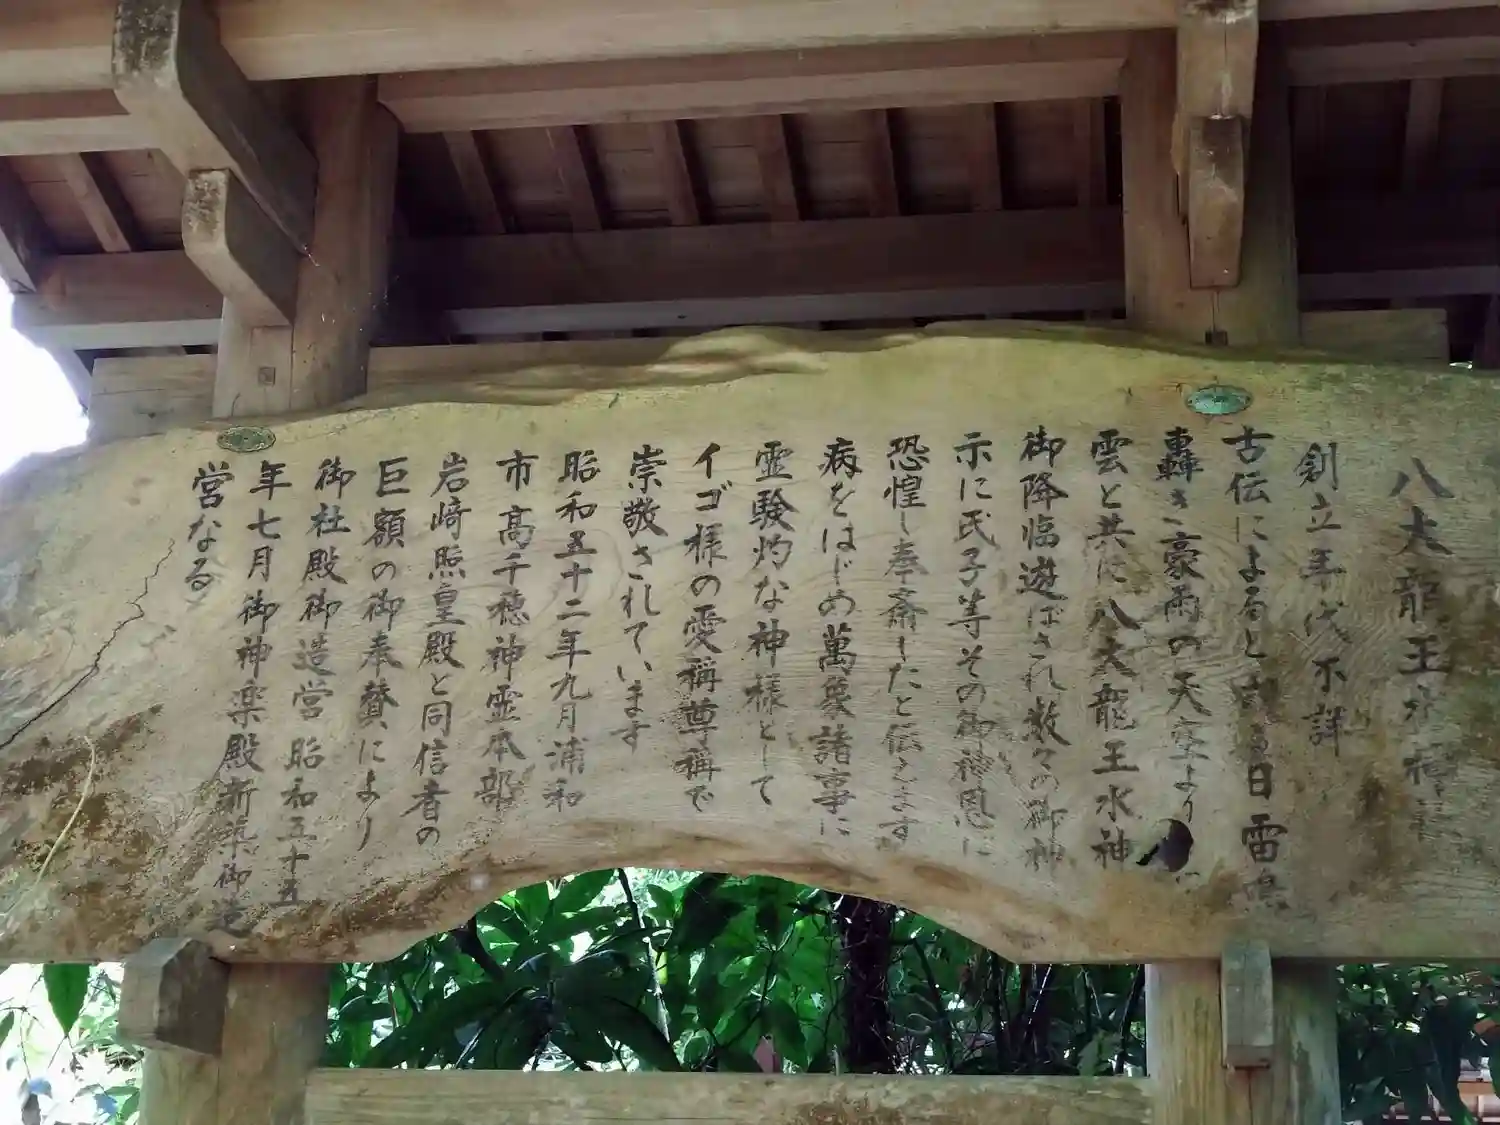 八大龍王水神
創立年代不詳
古伝によるとある日雷鳴
轟き豪雨の天空より
雲と共に八大龍王水神
御降臨遊ばされ数々の御神
示に氏子等その御神恩に
恐惶し奉斎したと伝えます
病をはじめ萬象諸事に
霊験灼な神様として
イゴ様の愛称尊称で
崇敬されています
昭和五十二年九月浦和
市高千穂神霊本部
岩崎照皇殿と同信者の
巨額の御奉賛により
御社殿御造営昭和五十五
年七月御神楽殿新築御造
営なる